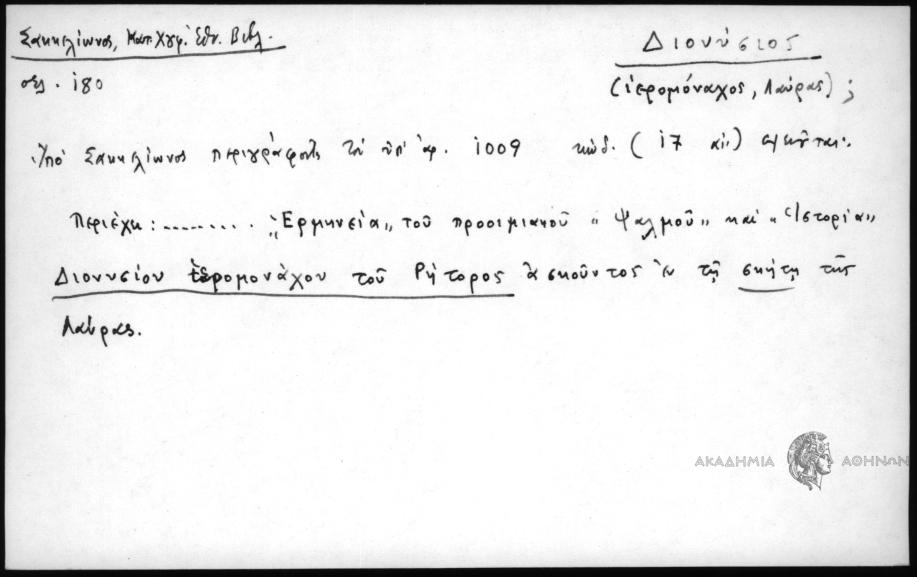 Σακκελίωνος, Κατ. Χγφ. Ἐθν. Βιβλ.
σελ. 180
Διονύσιος
(ἱερομόναχος, Λαύρας) ;
Ὑπό Σακκελίωνος περιγράφοντος τόν ὑπ' ἀρ. 1009 κώδ. (17 αἰ.) σημειοῦται:
Περιέχει: ......... "Ἑρμηνεία" τοῦ προοιμιακοῦ "Ψαλμοῦ" καί "Ἱστορία"
Διονυσίου ἱερομονάχου τοῦ Ρήτορος ἀσκοῦντος ἐν τῇ σκήτῃ τῆς
Λαύρας.
ΑΚΑΔΗΜΙΑ ΑΘΗΝΩΝ